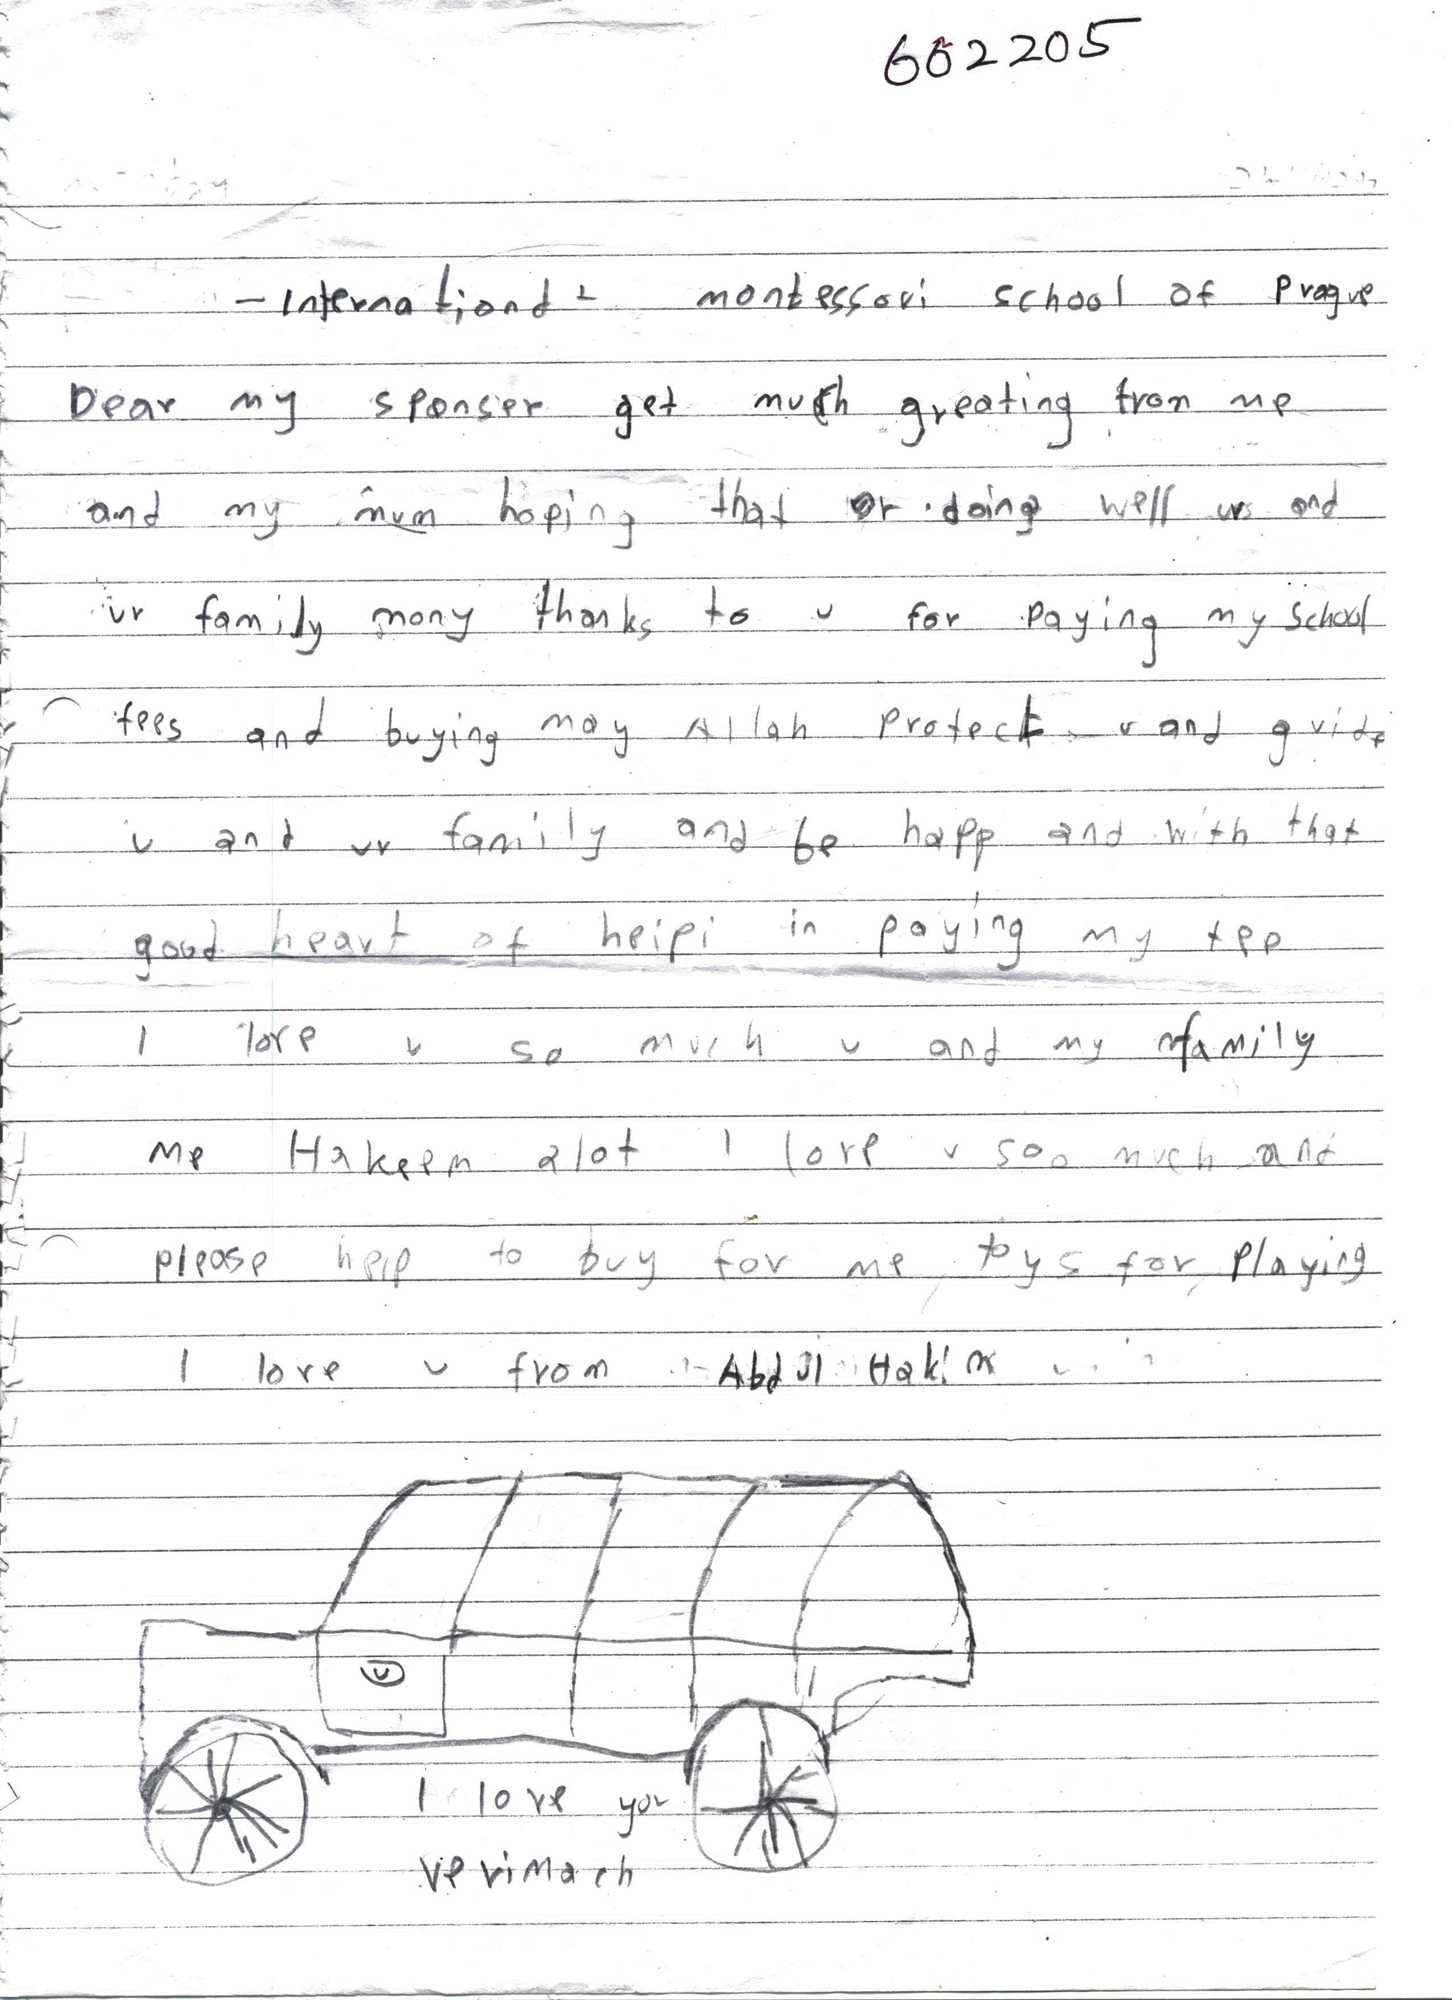 662205
- Internationd montessori school of Prague
Dear my sponser get much greating from me
and my mum hoping that or doing well us and
ur family mony thanks to u for paying my school
fees and buying may Allah protect u and guide
u and ur family and be happ and with that
good heart of heipi in paying my fee
I love u so much u and my family
me Hakeem alot I love u soo much and
please help to buy for me toys for playing
I love u from Abdul Hakim
U
I love you
verimach